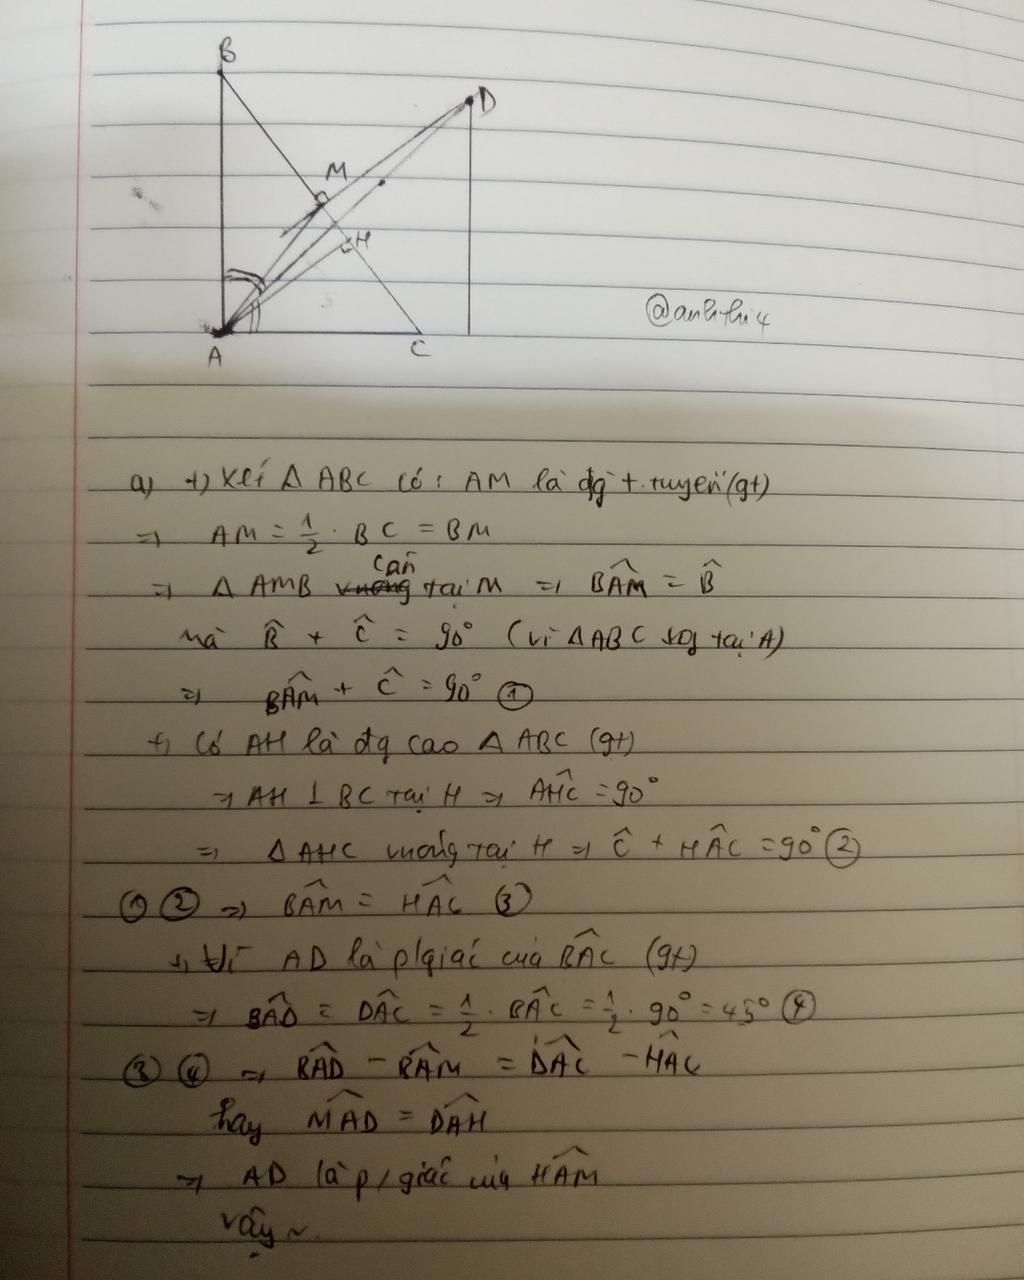 B
D
M
H
@anhthi4
A
C
a) +) Xét Δ ABC có: AM là đg t.tuyến (gt)
⇒ AM = 1/2 . BC = BM
⇒ Δ AMB cân tại M ⇒ BAM̂ = B̂
mà B̂ + Ĉ = 90° (vì Δ ABC vg tại A)
⇒ BAM̂ + Ĉ = 90° ①
+) Có AH là đg cao Δ ABC (gt)
⇒ AH ⊥ BC tại H ⇒ AHĈ = 90°
⇒ Δ AHC vuông tại H ⇒ Ĉ + HÂC = 90° ②
① ② ⇒ BÂM = HÂC ③
+) Vì AD là p/giác của BÂC (gt)
⇒ BÂD = DÂC = 1/2 . BÂC = 1/2 . 90° = 45° ④
③ ④ ⇒ BÂD - BÂM = DÂC - HÂC
hay MÂD = DÂH
⇒ AD là p/giác của HÂM
Vậy ~